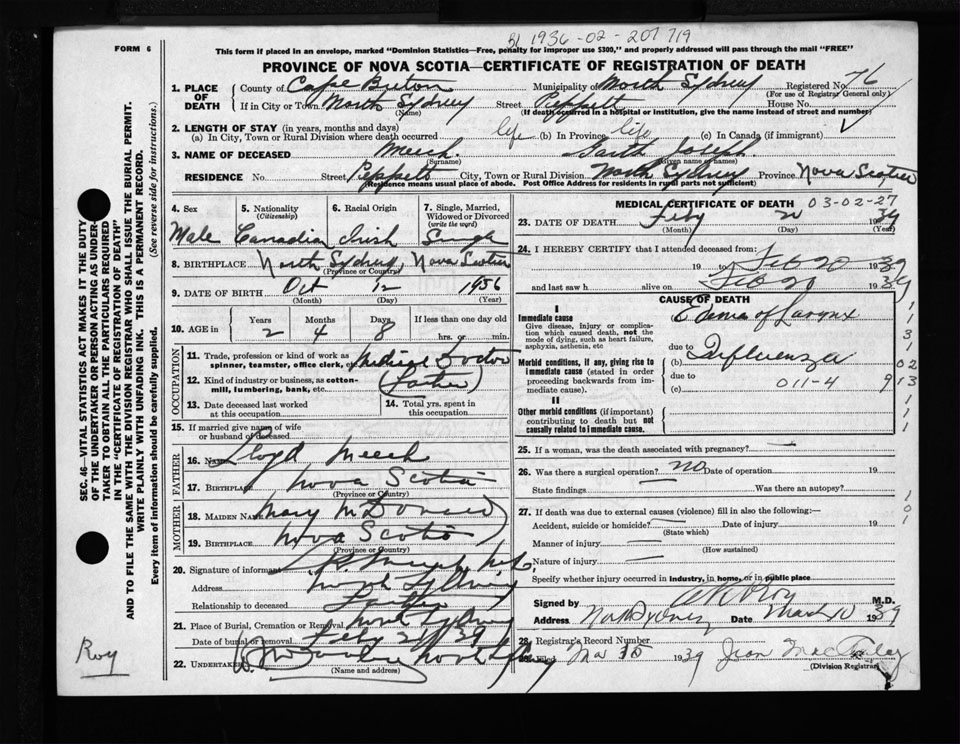 B1 1936-02-207719
FORM 6
This form if placed in an envelope, marked "Dominion Statistics—Free, penalty for improper use $300," and properly addressed will pass through the mail "FREE"
PROVINCE OF NOVA SCOTIA—CERTIFICATE OF REGISTRATION OF DEATH
1. PLACE OF DEATH
County of Cape Breton Municipality of North Sydney Registered No. 76
(For use of Registrar General only)
If in City or Town North Sydney Street Peppett House No.
(Name) (If death occurred in a hospital or institution, give the name instead of street and number)
2. LENGTH OF STAY (in years, months and days)
(a) In City, Town or Rural Division where death occurred life (b) In Province life (c) In Canada (if immigrant)
3. NAME OF DECEASED Meech Garth Joseph
(Surname) (Given name or names)
RESIDENCE No. Street Peppett City, Town or Rural Division North Sydney Province Nova Scotia
(Residence means usual place of abode. Post Office Address for residents in rural parts not sufficient)
4. Sex
Male
5. Nationality
(Citizenship)
Canadian
6. Racial Origin
Irish
7. Single, Married, Widowed or Divorced
(write the word)
Single
8. BIRTHPLACE North Sydney, Nova Scotia
(Province or Country)
9. DATE OF BIRTH Oct 12 1936
(Month) (Day) (Year)
10. AGE in
Years Months Days If less than one day old
2 4 8 hrs. or min.
OCCUPATION
11. Trade, profession or kind of work as spinner, teamster, office clerk, etc. Medical Doctor
12. Kind of industry or business, as cotton-mill, lumbering, bank, etc. (Father)
13. Date deceased last worked at this occupation
14. Total yrs. spent in this occupation
15. If married give name of wife or husband of deceased
FATHER
16. Name Lloyd Meech
17. Birthplace Nova Scotia
(Province or Country)
MOTHER
18. MAIDEN NAME Mary McDonald
19. BIRTHPLACE Nova Scotia
(Province or Country)
20. Signature of informant
Address North Sydney
Relationship to deceased
21. Place of Burial, Cremation or Removal North Sydney
Date of burial or removal Feby 21/39
22. UNDERTAKER North Sydney
(Name and address)
MEDICAL CERTIFICATE OF DEATH 03-02-27
23. DATE OF DEATH Feby 20 1939
(Month) (Day) (Year)
24. I HEREBY CERTIFY that I attended deceased from:
19 to Feb 20 1939
and last saw h alive on Feb 20 1939
CAUSE OF DEATH
I
Immediate cause
Give disease, injury or complication which caused death, not the mode of dying, such as heart failure, asphyxia, asthenia, etc
Edema of Larynx
due to
Morbid conditions, if any, giving rise to immediate cause (stated in order proceeding backwards from immediate cause).
(b) Influenza
due to
(c) 011-4 9
II
Other morbid conditions (if important) contributing to death but not causally related to immediate cause.
1
1
3
1
02
13
1
1
1
25. If a woman, was the death associated with pregnancy?
26. Was there a surgical operation? no Date of operation 19
State findings Was there an autopsy?
27. If death was due to external causes (violence) fill in also the following:—
Accident, suicide or homicide? Date of injury 19
(State which)
Manner of injury
(How sustained)
Nature of injury
Specify whether injury occurred in industry, in home, or in public place
1
01
1
Signed by Roy M.D.
Address North Sydney Date March 10 1939
28. Registrar's Record Number
Filed Mar 15 1939 Jean
(Division Registrar)
SEC. 46—VITAL STATISTICS ACT MAKES IT THE DUTY OF THE UNDERTAKER OR PERSON ACTING AS UNDERTAKER TO OBTAIN ALL THE PARTICULARS REQUIRED IN THE "CERTIFICATE OF REGISTRATION OF DEATH"
AND TO FILE THE SAME WITH THE DIVISION REGISTRAR WHO SHALL ISSUE THE BURIAL PERMIT.
WRITE PLAINLY WITH UNFADING INK. THIS IS A PERMANENT RECORD.
Every item of information should be carefully supplied. (See reverse side for instructions.)
Roy